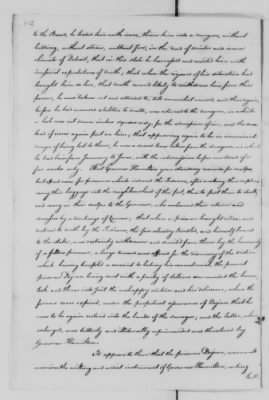 to the Board, he loaded him with irons, threw him into a dungeon, without
bedding, without straw, without fire, in the dead of winter and severe
climate of Detroit; that in this state he harrassed and insulted him with
incessant expectations of death; that when the rigours of his situation had
brought him so low, that death seemed likely to withdraw him from their
power, he was taken out and attended to, till somewhat mended, and then again,
before he had recovered abilities to walk, was returned to the dungeon, in which
a hole was cut seven inches square only for the admission of air, and the same
load of irons again put on him; that appearing again to be in imminent
danger of being lost to them, he was a second time taken from the dungeon, in which
he had lain from January to June, with the intermission before mentioned of a
few weeks only. That Governor Hamilton gave standing rewards for scalps,
but offered none for prisoners, which induced the Indians, after making their captives
carry their baggage into the neighbourhood of the fort, there to put them to death,
and carry in their scalps to the Governor, who welcomed their return and
success by a discharge of Cannon; that when a prisoner brought alive, and
destined to death by the Indians, the fire already kindled, and himself bound
to the stake, was
of a fellow prisoner, a large reward
which having
prisoner Dejean being sent with a party of soldiers
took and threw into jail the unhappy victim and his deliverer, where the
former soon expired, under the perpetual assurances of Dejean that he
was to be again restored into the hands of the savages, and the latter, when
enlarged, was bitterly and illiberally reprimanded and threatened by
Governor Hamilton.
It appears to them that the prisoner Dejean, was on all
occasions the willing and cordial instrument of Governor Hamilton, acting